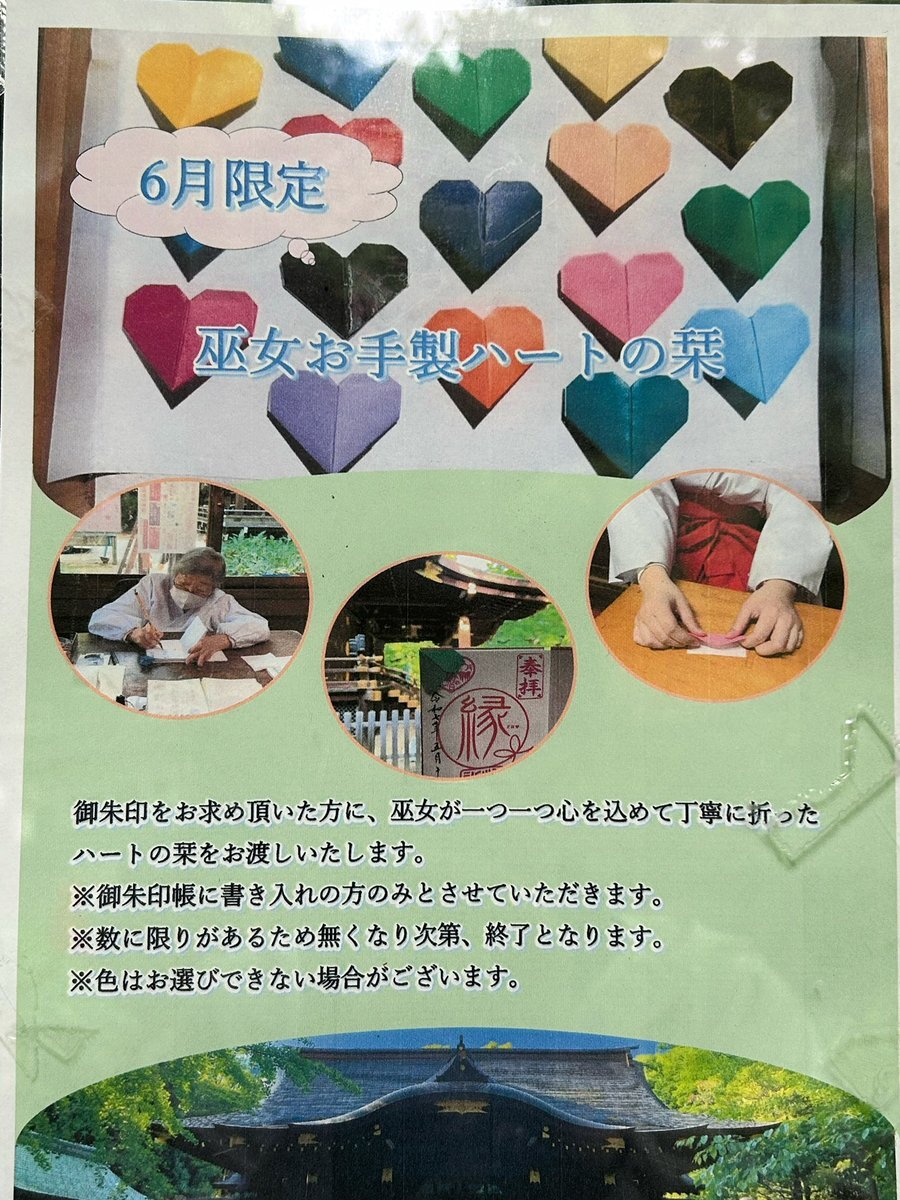 6月限定
巫女お手製ハートの栞
奉拝
縁
御朱印をお求め頂いた方に、巫女が一つ一つ心を込めて丁寧に折った
ハートの栞をお渡しいたします。
※御朱印帳に書き入れの方のみとさせていただきます。
※数に限りがあるため無くなり次第、終了となります。
※色はお選びできない場合がございます。